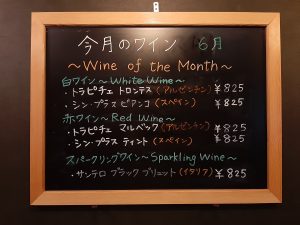 今月のワイン 6月
～Wine of the Month～
白ワイン～White Wine～
・トラピチェ トロンテス (アルゼンチン) ￥825
・シン・プラス ビアンコ (スペイン) ￥825
赤ワイン～Red Wine～
・トラピチェ マルベック (アルゼンチン) ￥825
・シン・プラス ティント (スペイン) ￥825
スパークリングワイン～Sparkling Wine～
・サンテロ ブラック ブリュット (イタリア) ￥825